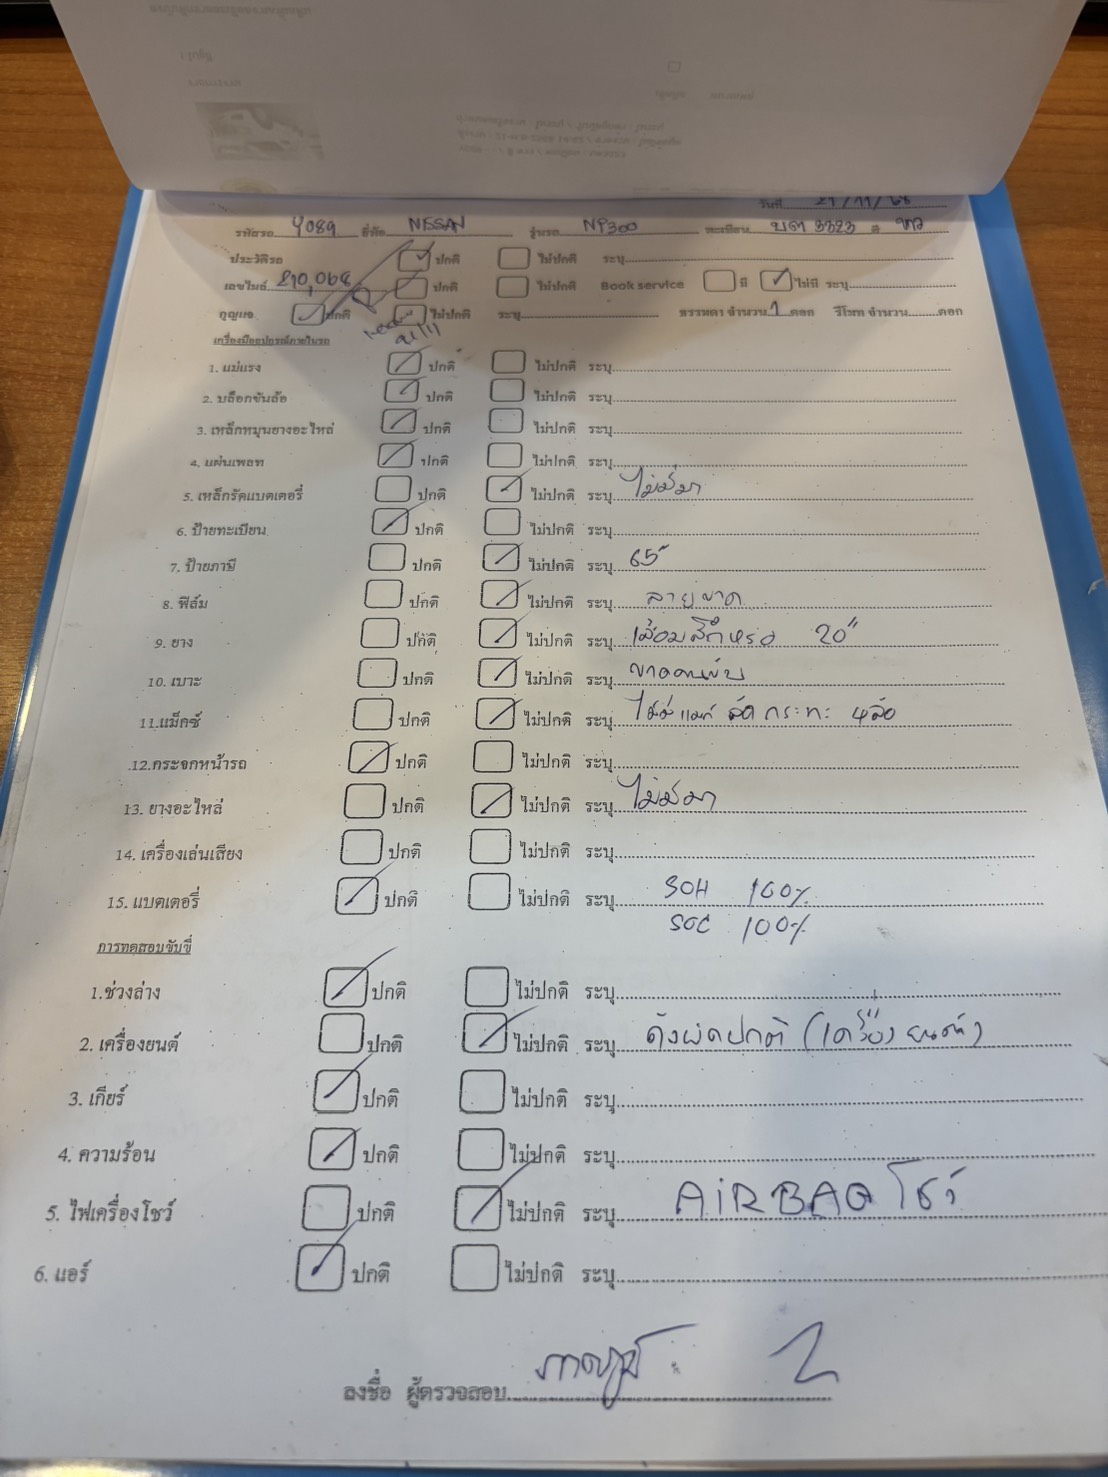 วันที่ 21/11/68
รหัสรถ 4089 ยี่ห้อ NISSAN รุ่นรถ NP300 ทะเบียน บต 3323 สี ขาว
ประวัติรถ ปกติ ไม่ปกติ ระบุ
เลขไมล์ 210,068 ปกติ ไม่ปกติ Book service มี ไม่มี ระบุ
กุญแจ ปกติ ไม่ปกติ ระบุ ธรรมดา จำนวน 1 ดอก รีโมท จำนวน ดอก
21/11
เครื่องมืออุปกรณ์ภายในรถ
1. แม่แรง ปกติ ไม่ปกติ ระบุ
2. บล็อกขันล้อ ปกติ ไม่ปกติ ระบุ
3. เหล็กหมุนยางอะไหล่ ปกติ ไม่ปกติ ระบุ
4. แผ่นเพลท ปกติ ไม่ปกติ ระบุ
5. เหล็กรัดแบตเตอรี่ ปกติ ไม่ปกติ ระบุ ไม่มีมา
6. ป้ายทะเบียน ปกติ ไม่ปกติ ระบุ
7. ป้ายภาษี ปกติ ไม่ปกติ ระบุ 65
8. ฟิล์ม ปกติ ไม่ปกติ ระบุ ลายขาด
9. ยาง ปกติ ไม่ปกติ ระบุ เสื่อมสึกหรอ 20"
10. เบาะ ปกติ ไม่ปกติ ระบุ ขาดคนขับ
11.แม็กซ์ ปกติ ไม่ปกติ ระบุ ไม่มีแมก ล้อ กระทะ 4ล้อ
12.กระจกหน้ารถ ปกติ ไม่ปกติ ระบุ
13. ยางอะไหล่ ปกติ ไม่ปกติ ระบุ ไม่มีมา
14. เครื่องเล่นเสียง ปกติ ไม่ปกติ ระบุ
15. แบตเตอรี่ ปกติ ไม่ปกติ ระบุ SOH 100%
SOC 100%
การทดสอบขับขี่
1.ช่วงล่าง ปกติ ไม่ปกติ ระบุ
2. เครื่องยนต์ ปกติ ไม่ปกติ ระบุ ดังผิดปกติ (เครื่องยนต์)
3. เกียร์ ปกติ ไม่ปกติ ระบุ
4. ความร้อน ปกติ ไม่ปกติ ระบุ
5. ไฟเครื่องโชว์ ปกติ ไม่ปกติ ระบุ AiRBAG โชว์
6. แอร์ ปกติ ไม่ปกติ ระบุ
ลงชื่อ ผู้ตรวจสอบ